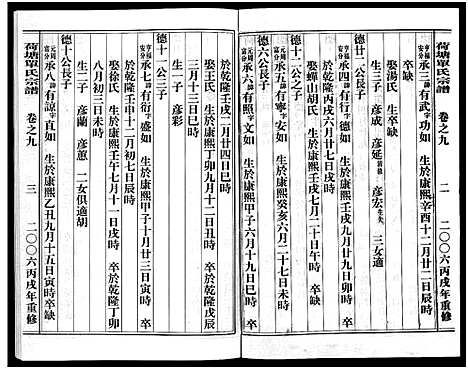 荷塘單氏宗譜 卷之九 二 二〇〇六丙戌年重修
亨福富分承三諱有武字功如 生於康熙辛酉十二月廿二日辰時
卒缺
娶湯氏 生卒缺
生三子 彥成 彥延 彥宏生失 三女適
德廿二公長子
亨福富分承四諱有行字德如 生於康熙壬戌九月廿七日戌時 卒
於乾隆丙戌六月廿七日戌時
娶蟬山胡氏 生於康熙壬戌七月 生卒缺
德十二公之子
元周富分承五諱有寧字安如 生於康熙癸亥六月二十七日未時
德六公長子
元周富分承六諱有照字文如 生於康熙甲子六月十九日巳時
於乾隆壬戌二月廿四日巳時
娶王氏 生於康熙丁卯九月初三日寅時 卒於乾隆戊辰
三月十三日辰時
生一子 彥彩
德十一公三子
亨福富分承七諱有衍字盛如 生於康熙甲子十月廿三日寅時 卒
於乾隆甲申十二月初七日辰時
娶徐氏 生於康熙壬午七月十一日戌時 卒於乾隆丁卯
八月初三日未時
生二子 彥蘭 彥蕙 二女俱適胡
德十公長子
元周富分承八諱有諒字直如 生於康熙乙丑九月十五日寅時卒缺
荷塘單氏宗譜 卷之九 三 二〇〇六丙戌年重修